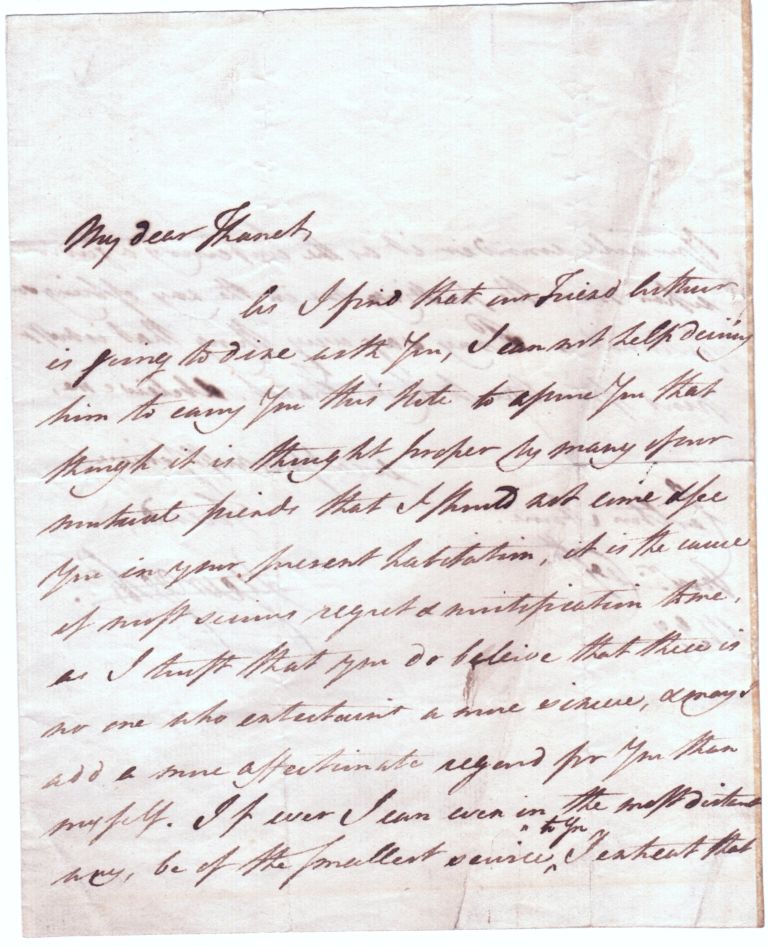 My dear Thanet,
As I find that our Friend Arthur
is going to dine with You, I can not help desiring
him to carry You this Note to assure You that
though it is thought proper by many of our
mutual friends that I should not come & see
You in your present habitation, it is the cause
of most serious regret & mortification to me,
as I trust that you do beleive that there is
no one who entertains a more sincere, & may I
add a more affectionate regard for You than
myself. If ever I can even in the most distant
way, be of the smallest service, to You I entreat that